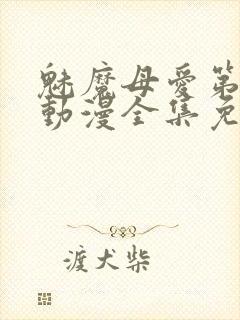 魅魔母爱第
動漫全集免
渡犬柴